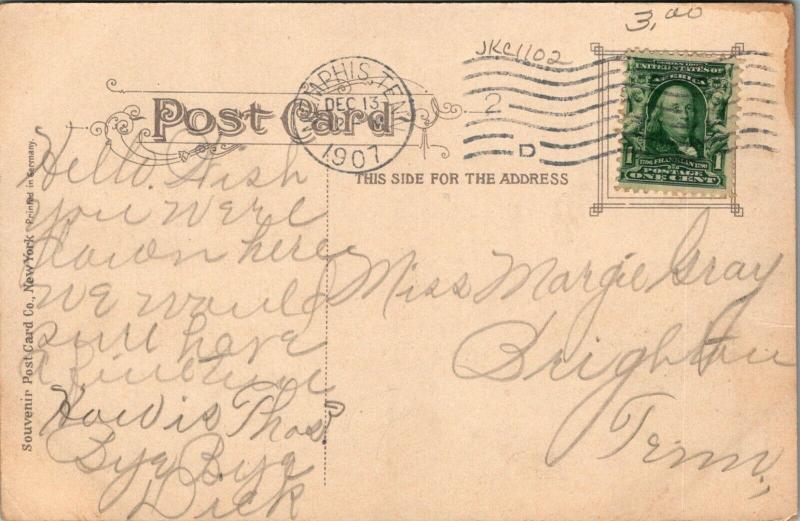 3,00
JKC1102
MEMPHIS, TENN.
DEC 13
1907
2
D
Post Card
THIS SIDE FOR THE ADDRESS
SERIES 1902
UNITED STATES OF
AMERICA
1 1
1706 FRANKLIN 1790
POSTAGE
ONE CENT
Souvenir Post Card Co., New York Printed in Germany.
Hello. Wish
you were
down here
we would
sure have
a fine time
How is Thos?
Bye Bye
Dick
Miss Margie Gray
Brighton
Tenn,